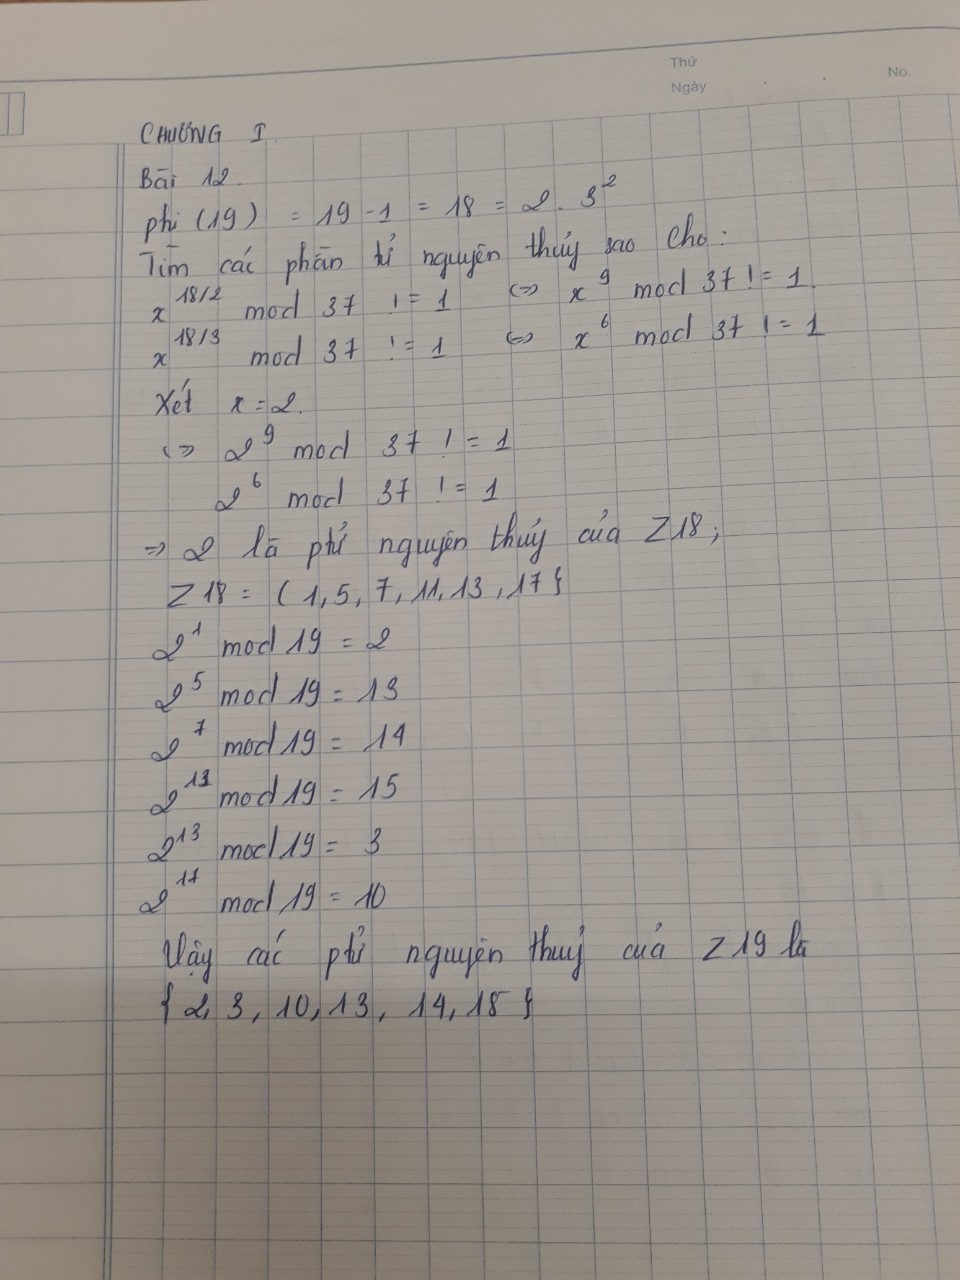 Thứ
Ngày
No.
CHƯƠNG I
Bài 12.
phi (19) = 19 - 1 = 18 = 2 . 3²
Tìm các phần tử nguyên thủy sao cho:
x^18/2 mod 37 != 1 <=> x^9 mod 37 != 1
x^18/3 mod 37 != 1 <=> x^6 mod 37 != 1
Xét x = 2.
<=> 2^9 mod 37 != 1
2^6 mod 37 != 1
=> 2 là ptử nguyên thủy của Z18;
Z18 = { 1, 5, 7, 11, 13, 17 }
2^1 mod 19 = 2
2^5 mod 19 = 13
2^7 mod 19 = 14
2^11 mod 19 = 15
2^13 mod 19 = 3
2^17 mod 19 = 10
Vậy các ptử nguyên thuỷ của Z19 là
{ 2, 3, 10, 13, 14, 15 }